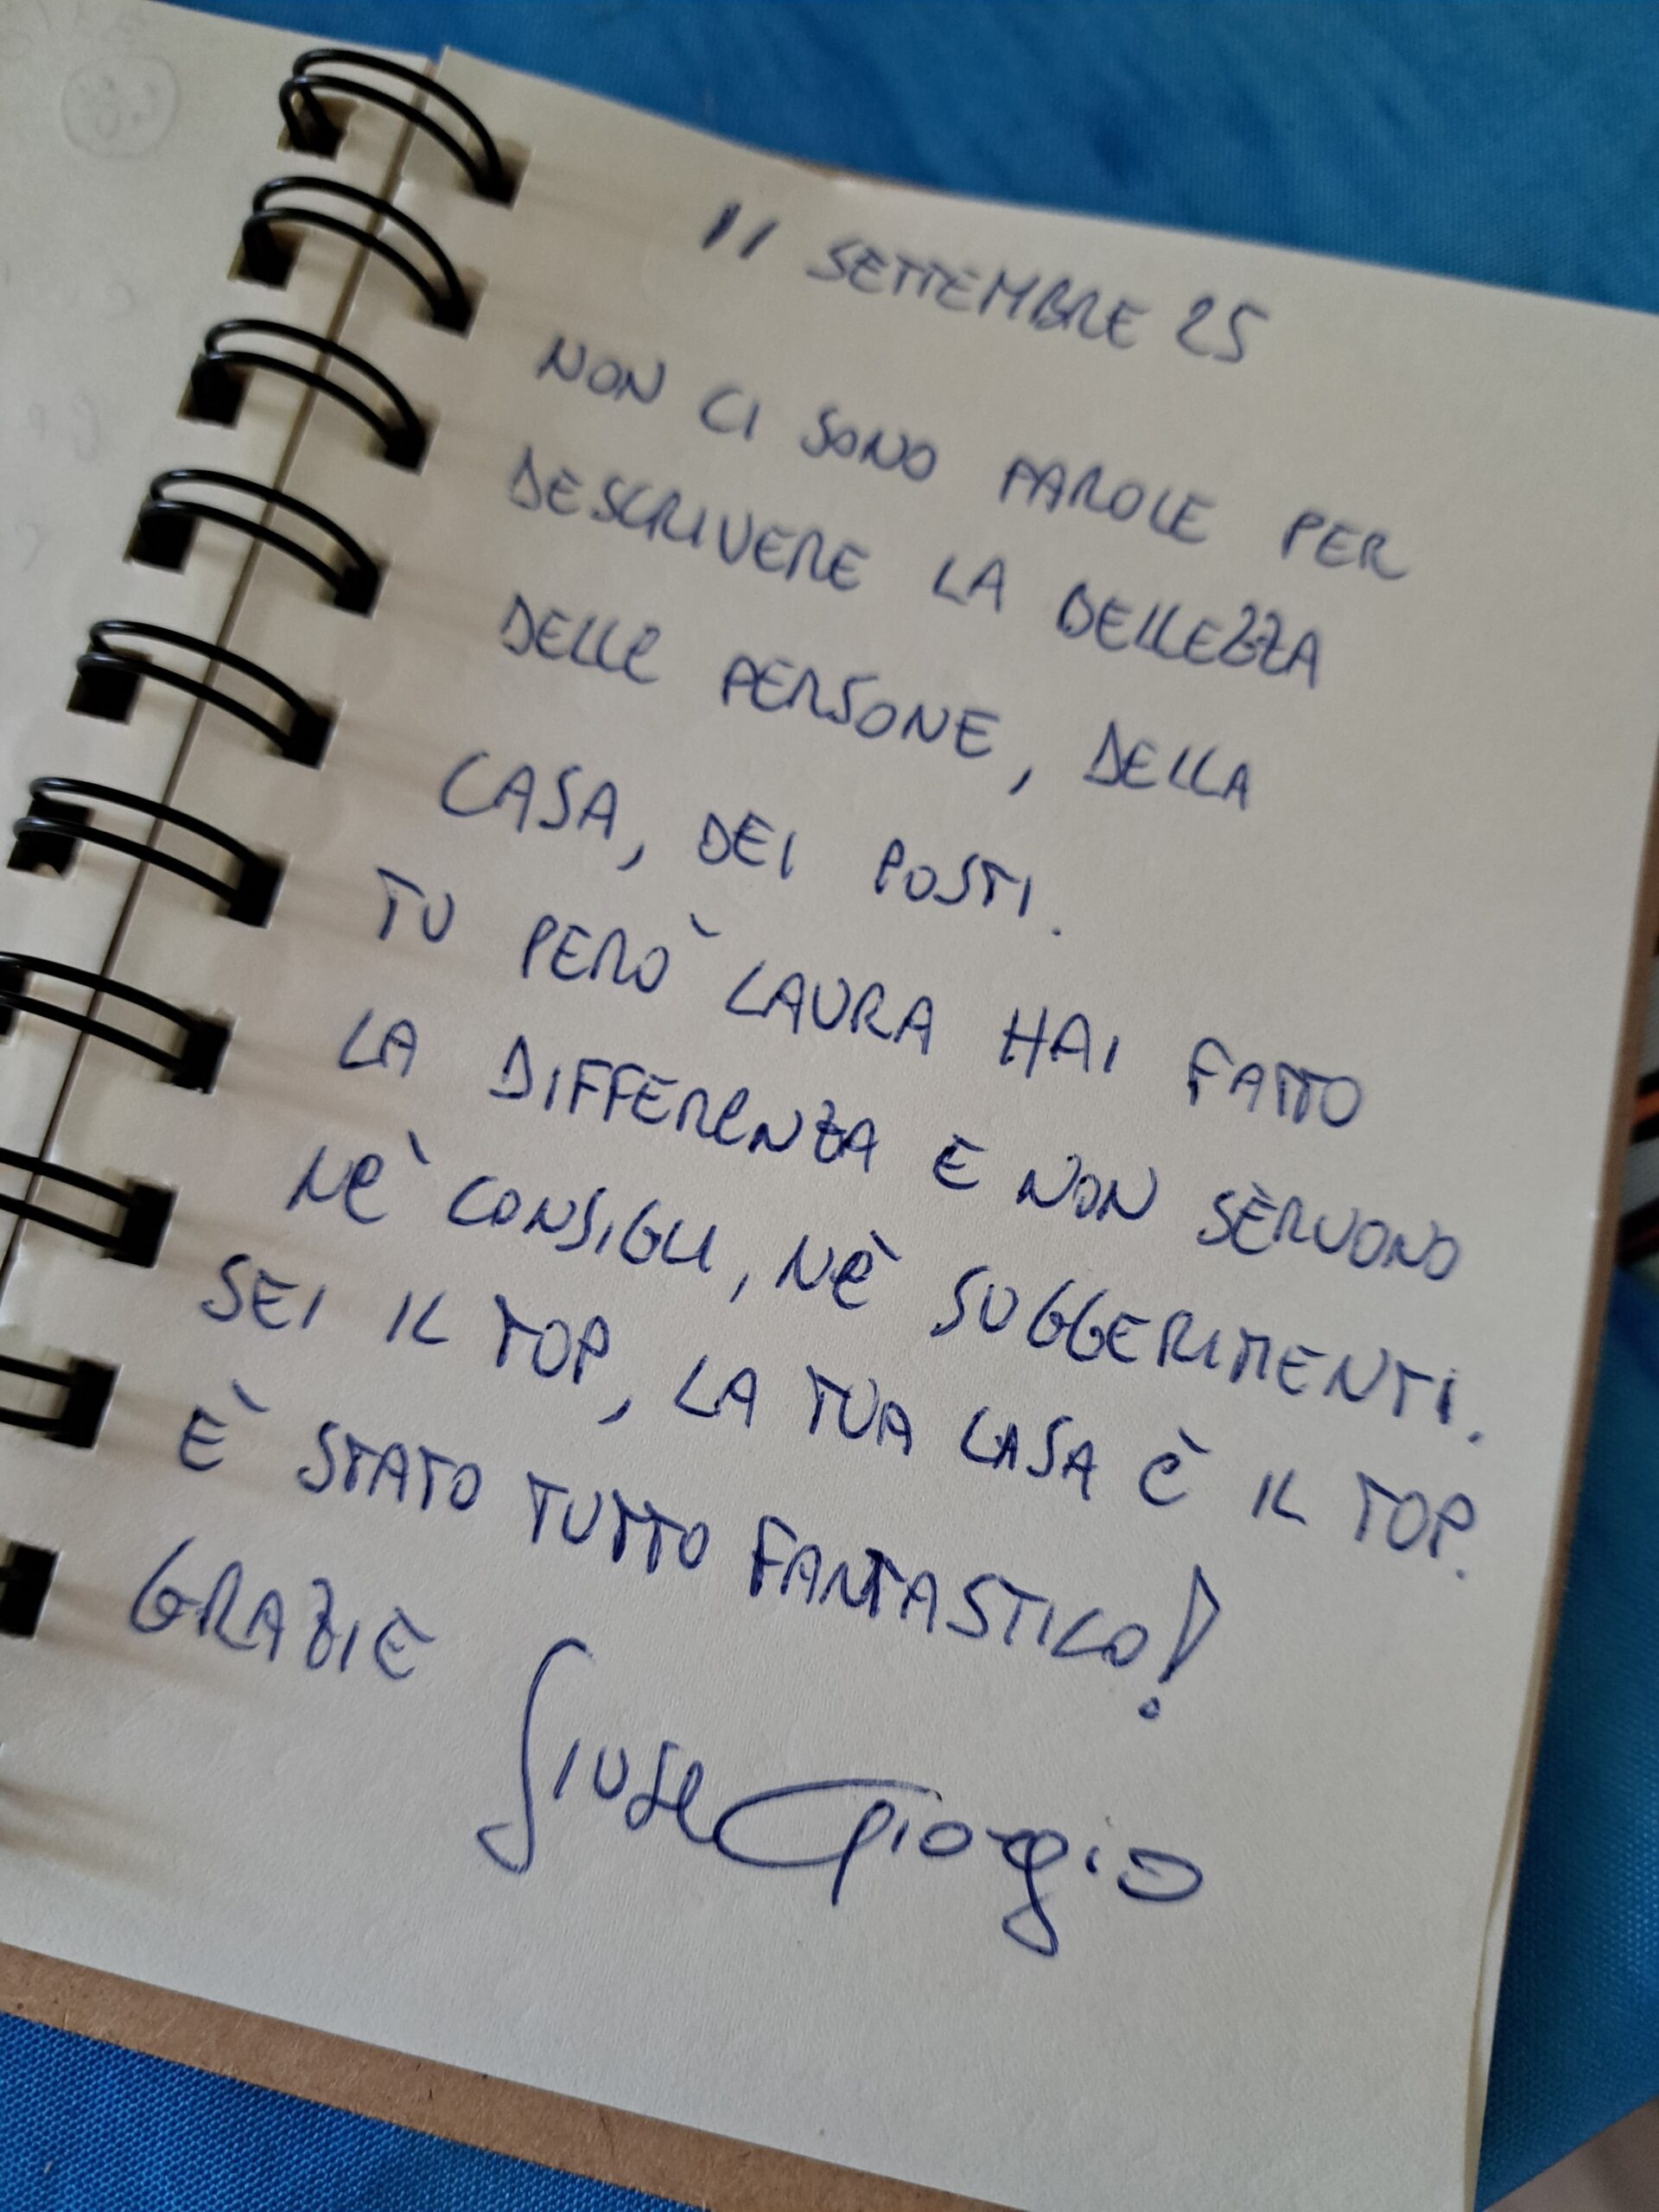 11 SETTEMBRE 25
NON CI SONO PAROLE PER
DESCRIVERE LA BELLEZZA
DELLE PERSONE, DELLA
CASA, DEI POSTI.
TU PERÒ LAURA HAI FATTO
LA DIFFERENZA E NON SÈRVONO
NÈ CONSIGLI, NÈ SUGGERIMENTI.
SEI IL TOP, LA TUA CASA È IL TOP.
È STATO TUTTO FANTASTICO!
GRAZIE
Giuse Giorgio